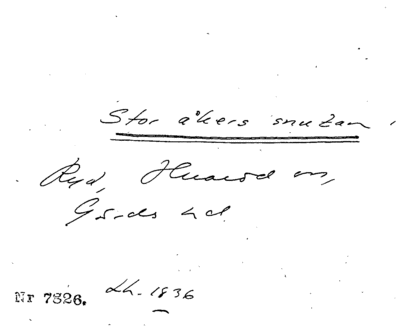 Storåkers snutan
Ryd, Hvarod sn,
Gärds hd.
Nr 7326. Lh. 1836